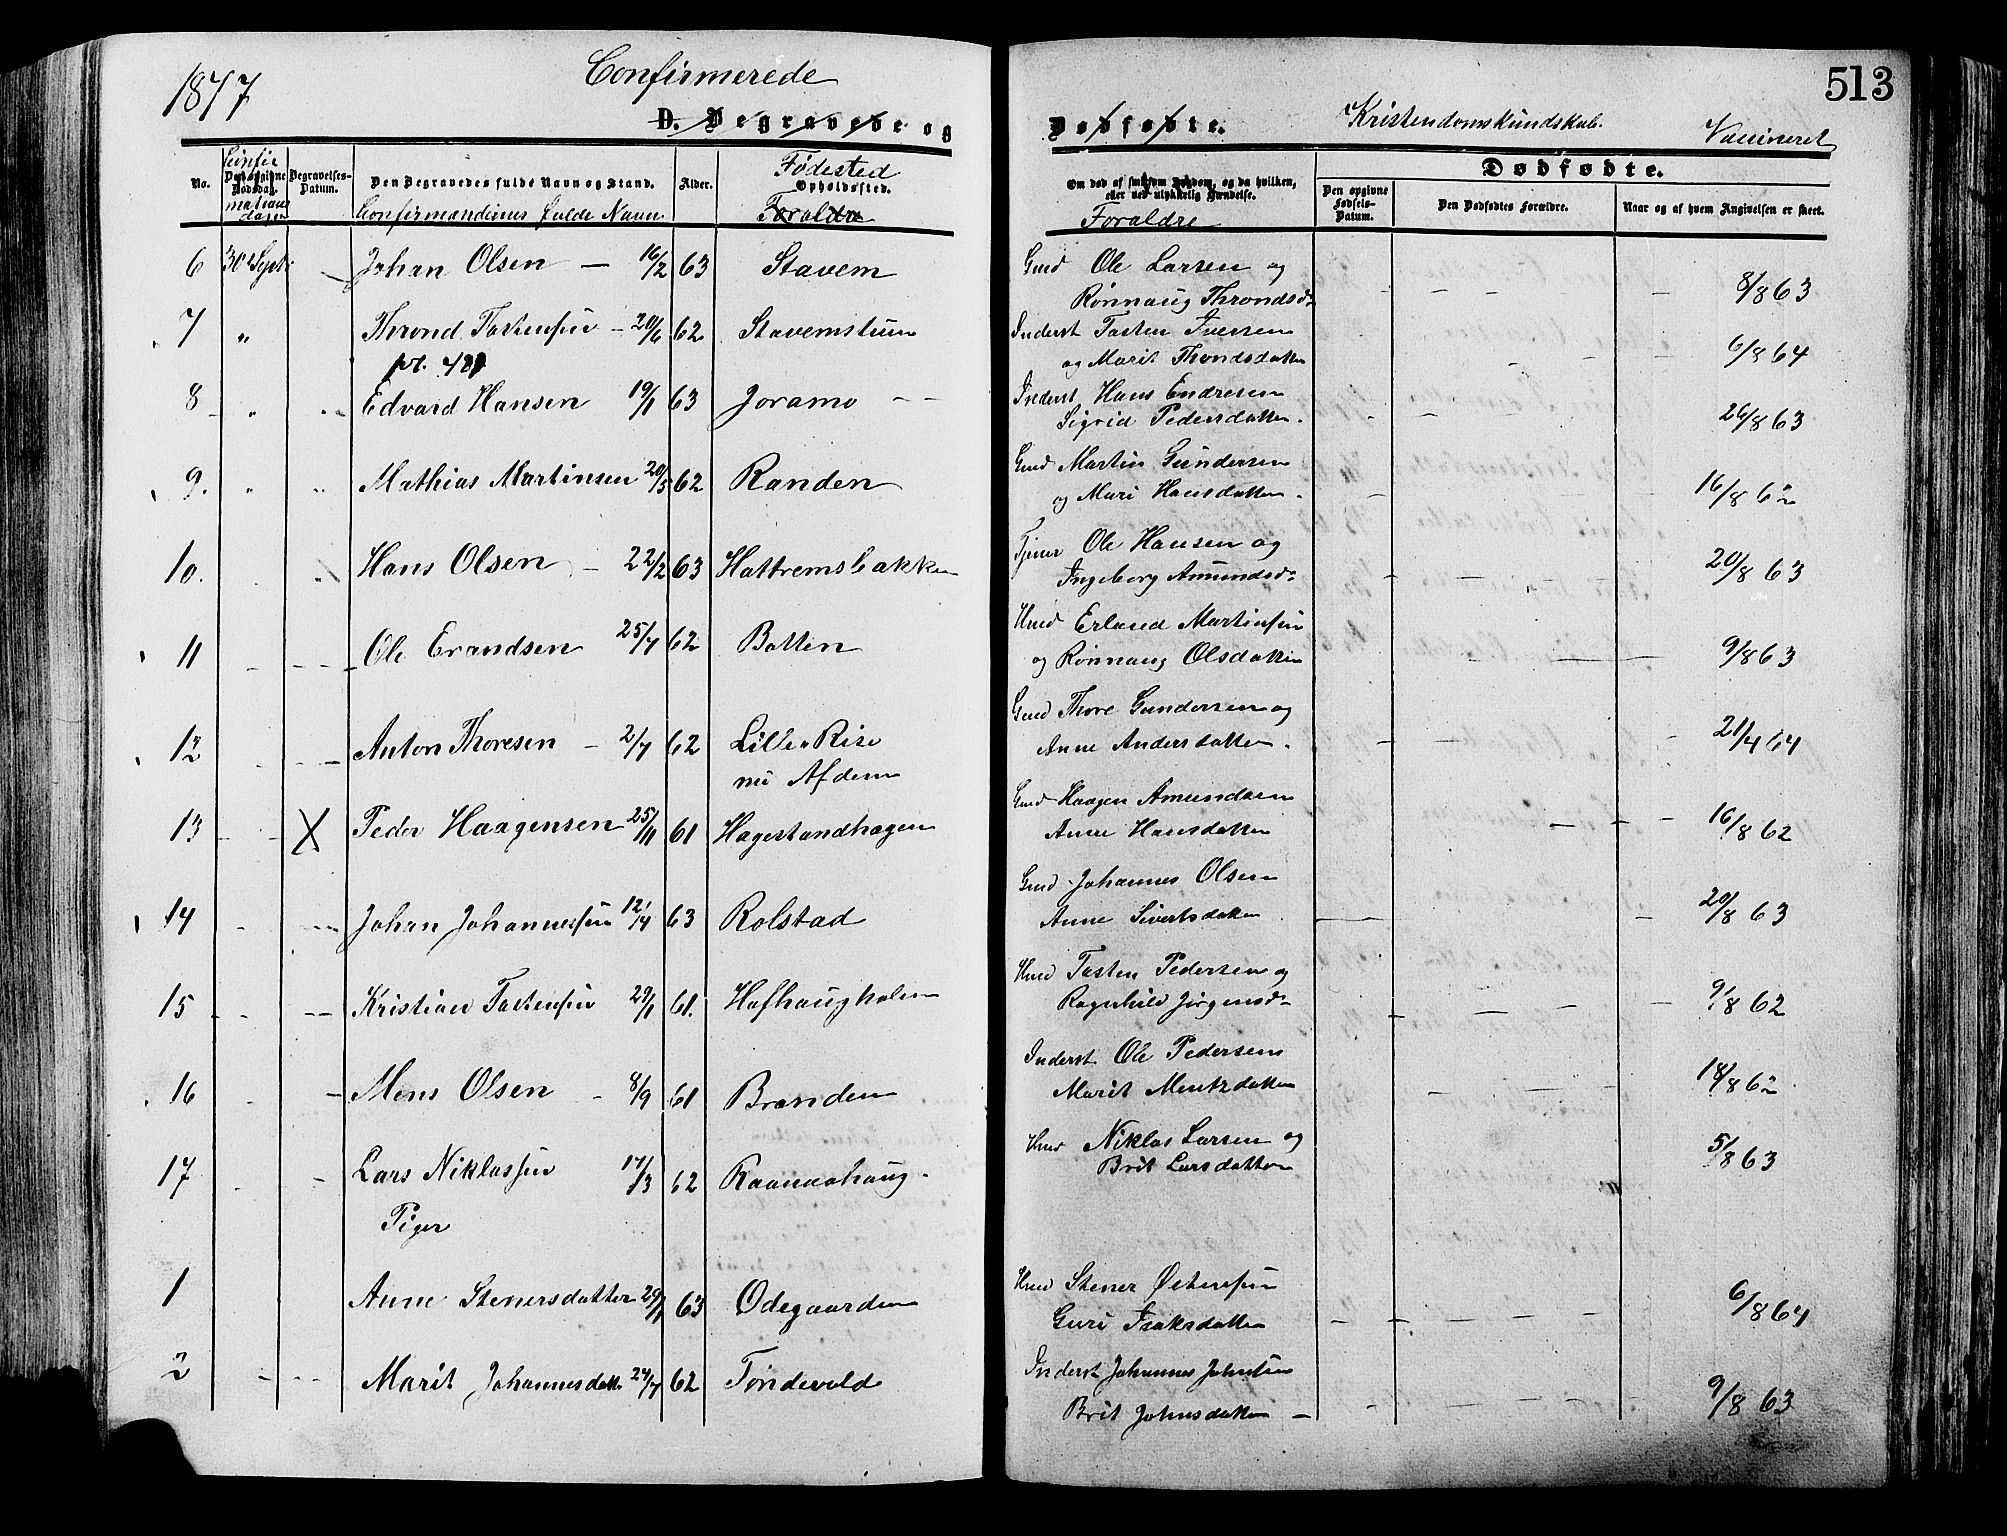 1877
Confirmerede
D. Begravede og
No.
Confir
Den opgivne Dødsdag.
mations
dagen
Begravelses-Datum.
Den Begravedes fulde Navn og Stand.
Confirmandernes fulde Navn
Alder.
Fødested
Opholdssted.
Foraldre
6 30 Septr Johan Olsen — 16/2 63 Stavem
7 " Thrond Tostensen — 20/6 62 Stavemstuen
8 " " Edvard Hansen 19/1 63 Joramo
9. " " Mathias Martinsen 20/5 62 Randen
10. Hans Olsen — 22/2 63 Hattremsbakken
11 Ole Erandsen 25/7 62 Botten
12 Anton Thoresen — 2/7 62 Lille Rise
nu Afdem
13 X Peder Haagensen 25/11 61 Hagestandhagen
14 Johan Johannessen 12/4 63 Rolstad
15 Kristian Tostensen 29/1 61. Hofhaugholen
16 Mens Olsen — 8/9 61 Branden
17 Lars Niklassen 17/3 62 Raanaahaug
Piger
1 Anne Stenersdatter 29/1 63 Odegaarden
2 Marit Johannesdatt 24/7 62 Tondevold
513
Dødfødte.
Kristendomskundskab.
Vaccineret
Om død af smitsom Sygdom, og da hvilken,
eller ved ulykkelig Hændelse.
Foraldre
Dødfødte.
Den opgivne Fødsels-Datum.
Den Dødfødtes Forældre.
Naar og af hvem Angivelsen er skeet.
Gmd Ole Larsen og
Rønnaug Throndsd.
8/8 63
Inderst Tosten Iversen
og Marit Throndsdatter
6/8 64
Inderst Hans Endresen
Sigrid Pedersdatter.
26/8 63
Gmd Martin Gundersen
og Mari Hansdatter.
16/8 62
Tjener Ole Hansen og
Ingeborg Amundsd.
20/8 63
Hmd Erland Martinsen
og Rønnaug Olsdatter
9/8 63
Gmd Thore Gundersen og
Anne Andersdatter.
21/4 64
Gmd Haagen Amundsen
Anne Hansdatter
16/8 62
Gmd Johannes Olsen
Anne Sivertsdatter
20/8 63
Hmd Tosten Pedersen og
Ragnhild Jørgensd.
9/8 62
Inderst Ole Pedersen
Marit Mentzdatter
18/8 62
Hmd Niklas Larsen og
Brit Larsdatter
5/8 63
Hmd Stener Østensen
Guri Isaksdatter
6/8 64
Inderst Johannes Johnsen
Brit Johnsdatter —
9/8 63